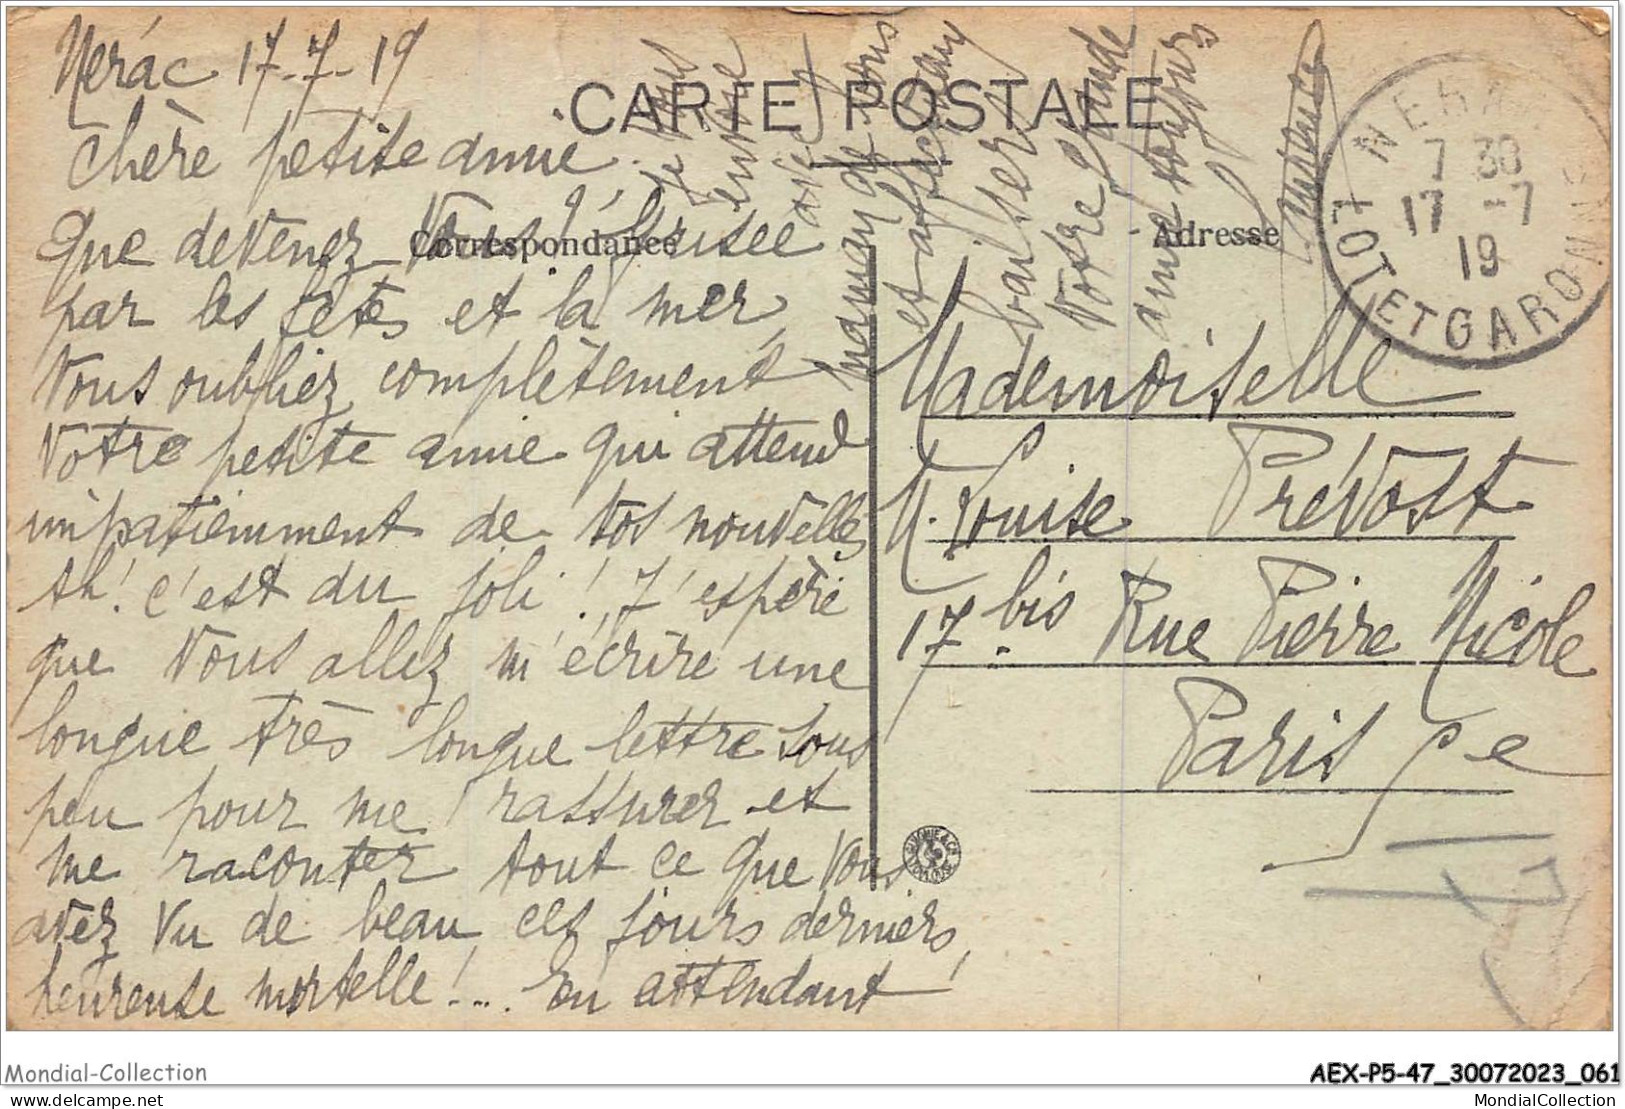 Nerac 17-7-19
CARTE POSTALE
Chère petite amie.
Correspondance
Que devenez Vous? Grisée
par les fêtes et la mer,
Vous oubliez complètement
Votre petite amie qui attend
impatiemment de vos nouvelles
Ah! c'est du joli! J'espère
que Vous allez m'écrire une
longue très longue lettre sous
peu pour me rassurer et
me raconter tout ce que Vous
avez Vu de beau ces jours derniers,
heureuse mortelle!... En attendant
je vous
envoie
avec
maman de bons
et affectueux
baisers
Votre grande
amie toujours
Adresse
Mademoiselle
M. Louise Prévost
17 bis Rue Pierre Nicole
Paris 5e
NERAC
7 30
17 -7
19
LOT ET GARONNE
Mondial-Collection
AEX-P5-47_30072023_061
mondial-collection
MondialCollection